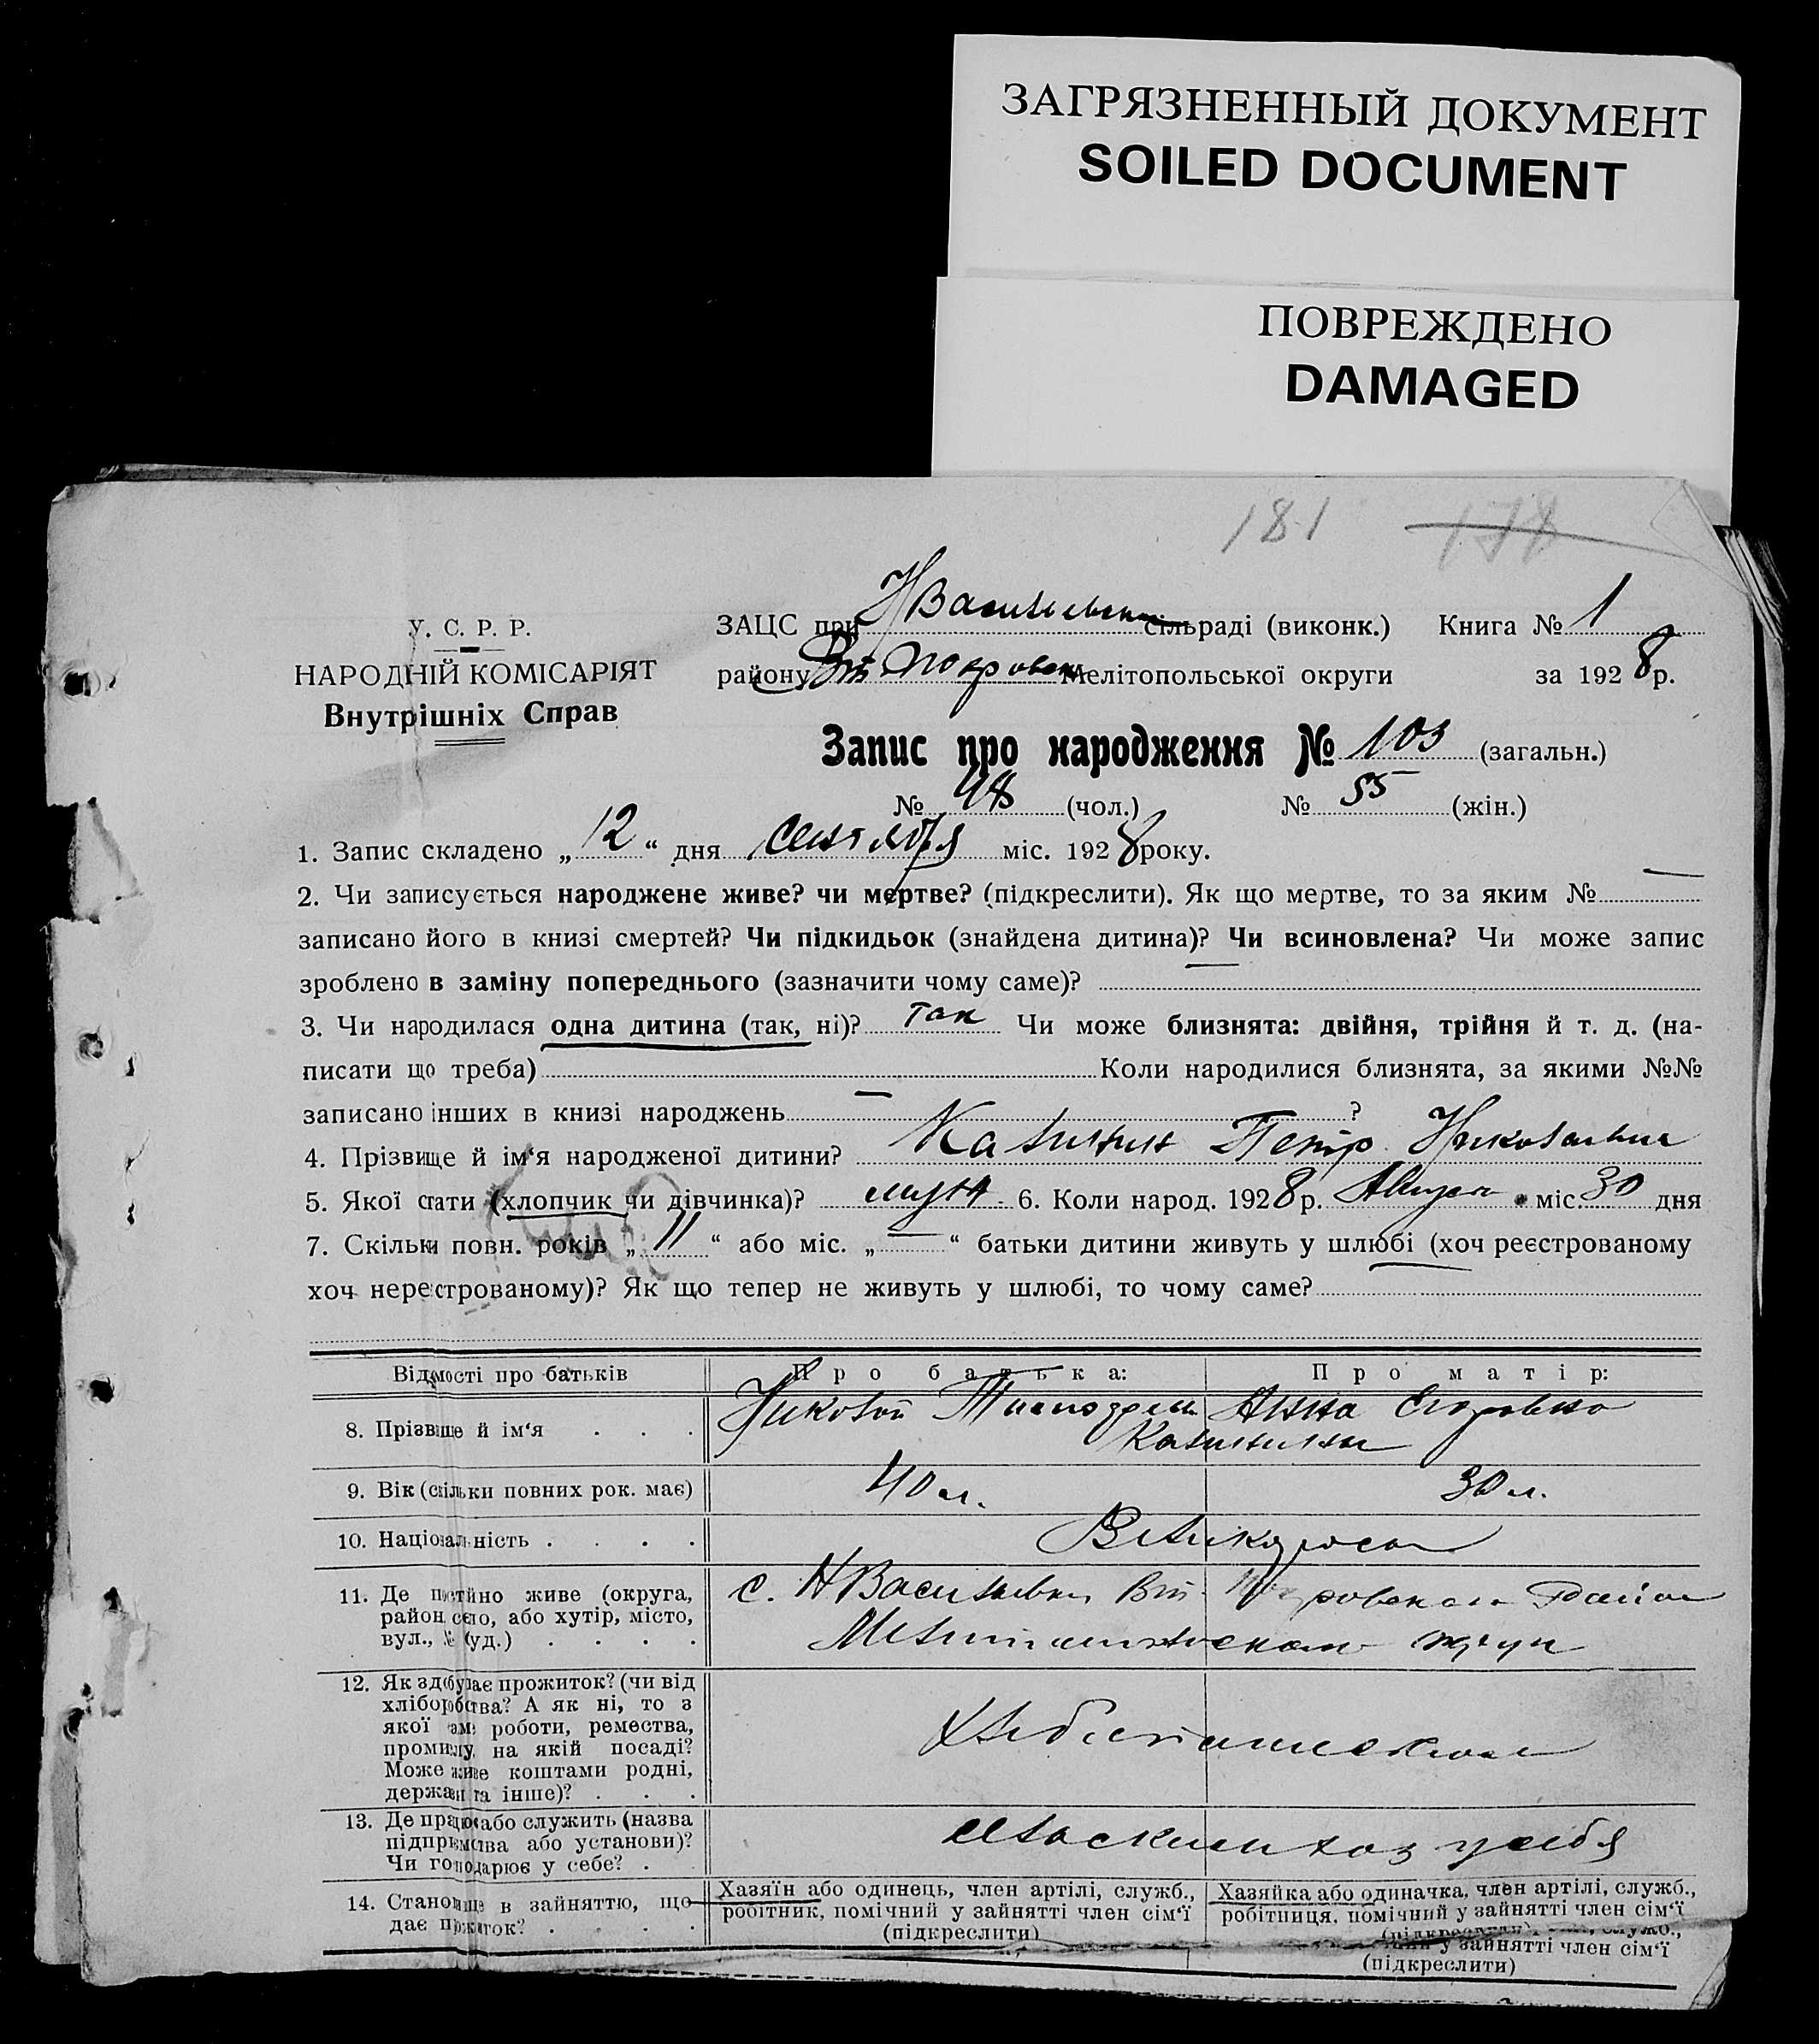 ЗАГРЯЗНЕННЫЙ ДОКУМЕНТ
SOILED DOCUMENT
ПОВРЕЖДЕНО
DAMAGED
181 178
У. С. Р. Р.
НАРОДНІЙ КОМІСАРІЯТ
Внутрішніх Справ
ЗАЦС при НВасильевской сільраді (виконк.) Книга № 1
району Вт Покровск Мелітопольської округи за 1928 р.
Запис про народження № 103 (загальн.)
№ 48 (чол.) № 55 (жін.)
1. Запис складено „12“ дня сентября міс. 1928 року.
2. Чи записується народжене живе? чи мертве? (підкреслити). Як що мертве, то за яким № —
записано його в книзі смертей? Чи підкидьок (знайдена дитина)? Чи всиновлена? Чи може запис
зроблено в заміну попереднього (зазначити чому саме)? —
3. Чи народилася одна дитина (так, ні)? так Чи може близнята: двійня, трійня й т. д. (на-
писати що треба) Коли народилися близнята, за якими №№
записано інших в книзі народжень — ?
4. Прізвище й ім‘я народженої дитини? Калинин Петр Николаевич
5. Якої стати (хлопчик чи дівчинка)? муж 6. Коли народ. 1928 р. Август міс. 30 дня
7. Скільки повн. років „11“ або міс. „—“ батьки дитини живуть у шлюбі (хоч реєстрованому
хоч нереєстрованому)? Як що тепер не живуть у шлюбі, то чому саме?
Відомості про батьків Про батька: Про матір:
8. Прізвище й ім‘я . . . Николай Анна Егоровна
Калинины
9. Вік (скільки повних рок. має) 40 л. 30 л.
10. Національність . . . . Великоросы
11. Де постійно живе (округа, район, село, або хутір, місто, вул., № буд.) . . . . с. НВасильевка Вт. Покровского Района
Мелитопольского округа
12. Як здобуває прожиток? (чи від хліборобства? А як ні, то з якої саме роботи, ремества, промислу, на якій посаді? Може живе коштами родні, держави та інше)? . . . Хлебопашеством
13. Де працює або служить (назва підприємства або установи)? Чи господарює у себе? . у себя
14. Становище в зайняттю, що дає прожиток? . . . .
Хазяїн або одинець, член артілі, служб.,
робітник, помічний у зайнятті член сім‘ї
(підкреслити)
Хазяйка або одиначка, член артілі, служб.,
робітниця, помічний у зайнятті член сім‘ї
(підкреслити)
у зайнятті член сім‘ї
(підкреслити)